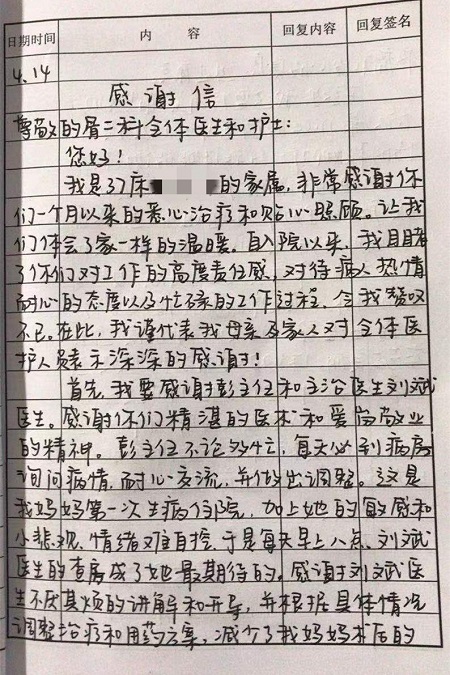 日期时间 内 容 回复内容 回复签名
4.14
感谢信
尊敬的骨二科全体医生和护士：
您好！
我是37床的家属，非常感谢你
们一个月以来的悉心治疗和贴心照顾。让我
们体会了家一样的温暖。自入院以来，我目睹
了你们对工作的高度责任感，对待病人热情
耐心的态度以及忙碌的工作过程，令我赞叹
不已。在此，我谨代表我母亲及家人对全体医
护人员表示深深的感谢！
首先，我要感谢彭主任和主治医生刘斌
医生。感谢你们精湛的医术和爱岗敬业
的精神。彭主任不论多忙，每天必到病房
询问病情，耐心交流，并做出调整。这是
我妈妈第一次生病住院，加上她的敏感和
小悲观，情绪难自控，于是每天早上八点，刘斌
医生的查房成了她最期待的。感谢刘斌医
生不厌其烦的讲解和开导，并根据具体情况
调整治疗和用药方案，减少了我妈妈术后的